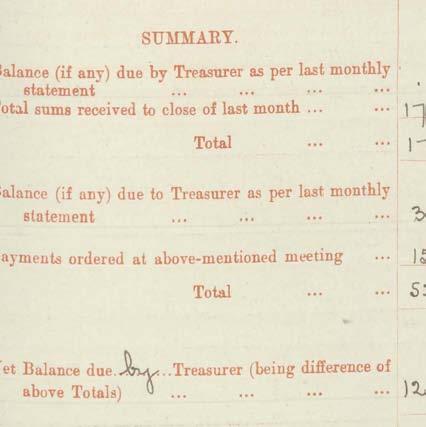 SUMMARY.
Balance (if any) due by Treasurer as per last monthly
statement ... ... ... ...
Total sums received to close of last month ... ... 17
Total ... ... 1
Balance (if any) due to Treasurer as per last monthly
statement ... ... ... ... 3
Payments ordered at above-mentioned meeting ... 15
Total ... ... 5
Net Balance due..by...Treasurer (being difference of
above Totals) ... ... ... ... 12